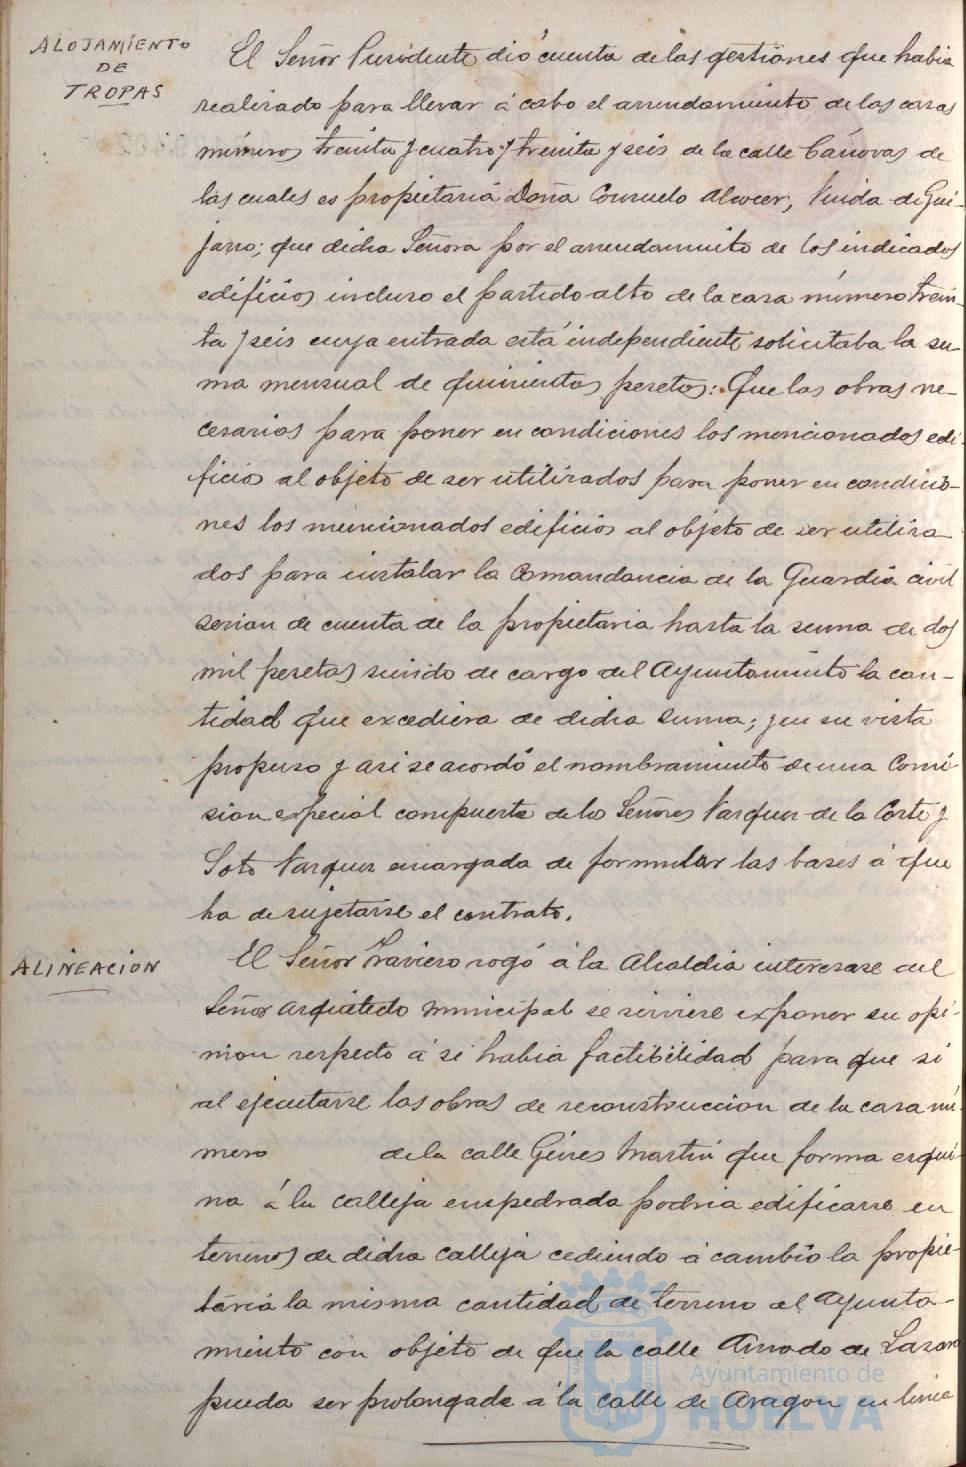 ALOJAMIENTO
DE
TROPAS
El Señor Presidente dió cuenta de las gestiones que habia
realizado para llevar á cabo el arrendamiento de las casas
números treinta y cuatro y treinta y seis de la calle Cánovas de
las cuales es propietaria Doña Consuelo Alcocer, Viuda de Gui-
jarro; que dicha Señora por el arrendamiento de los indicados
edificios incluso el partido alto de la casa número trein-
ta y seis cuya entrada está independiente solicitaba la su-
ma mensual de quinientas pesetas: Que las obras ne-
cesarias para poner en condiciones los mencionados edi-
ficios al objeto de ser utilizados para poner en condicio-
nes los mencionados edificios al objeto de ser utiliza
dos para instalar la Comandancia de la Guardia civil
serian de cuenta de la propietaria hasta la suma de dos
mil pesetas siendo de cargo del Ayuntamiento la can-
tidad que excediera de dicha suma; y en su vista
propuso y asi se acordó el nombramiento de una Comi-
sion especial compuesta de los Señores Vazquez de la Corte y
Soto Vazquez encargada de formular las bases á que
ha de sujetarse el contrato.
ALINEACION
El Señor Traviero rogó á la Alcaldia interesase del
Señor Arquitecto municipal se sirviese exponer su opi-
nion respecto á si habia factibilidad para que si
al ejecutarse las obras de reconstruccion de la casa nú-
mero de la calle Ginés Martin que forma esqui-
na á la calleja empedrada podria edificarse en
terrenos de dicha calleja cediendo á cambio la propie-
taria la misma cantidad de terreno al Ayunta-
miento con objeto de que la calle Amado de Lazaro
pueda ser prolongada á la calle de Aragon en linea
Ayuntamiento de
HUELVA